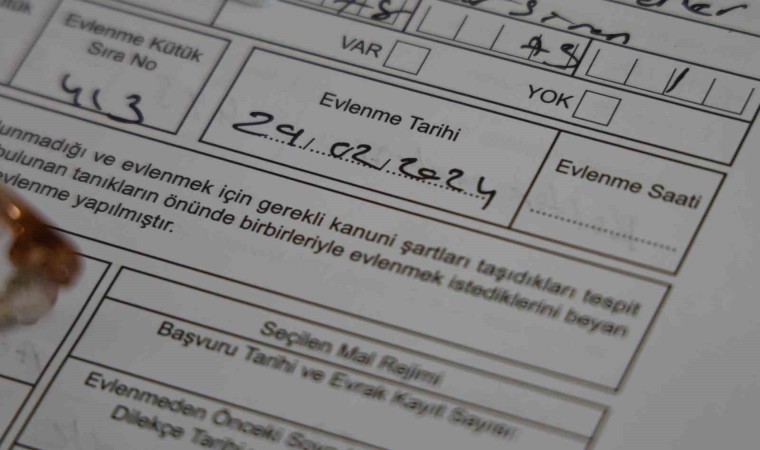 VAR
YOK
Evlenme Kütük
Sıra No
413
Evlenme Tarihi
29/02/2024
Evlenme Saati
ulunmadığı ve evlenmek için gerekli kanuni şartları taşıdıkları tespit
bulunan tanıkların önünde birbirleriyle evlenmek istediklerini beyan
evlenme yapılmıştır.
Seçilen Mal Rejimi
Başvuru Tarihi ve Evrak Kayıt Sayısı
Evlenmeden Önceki
Dilekçe